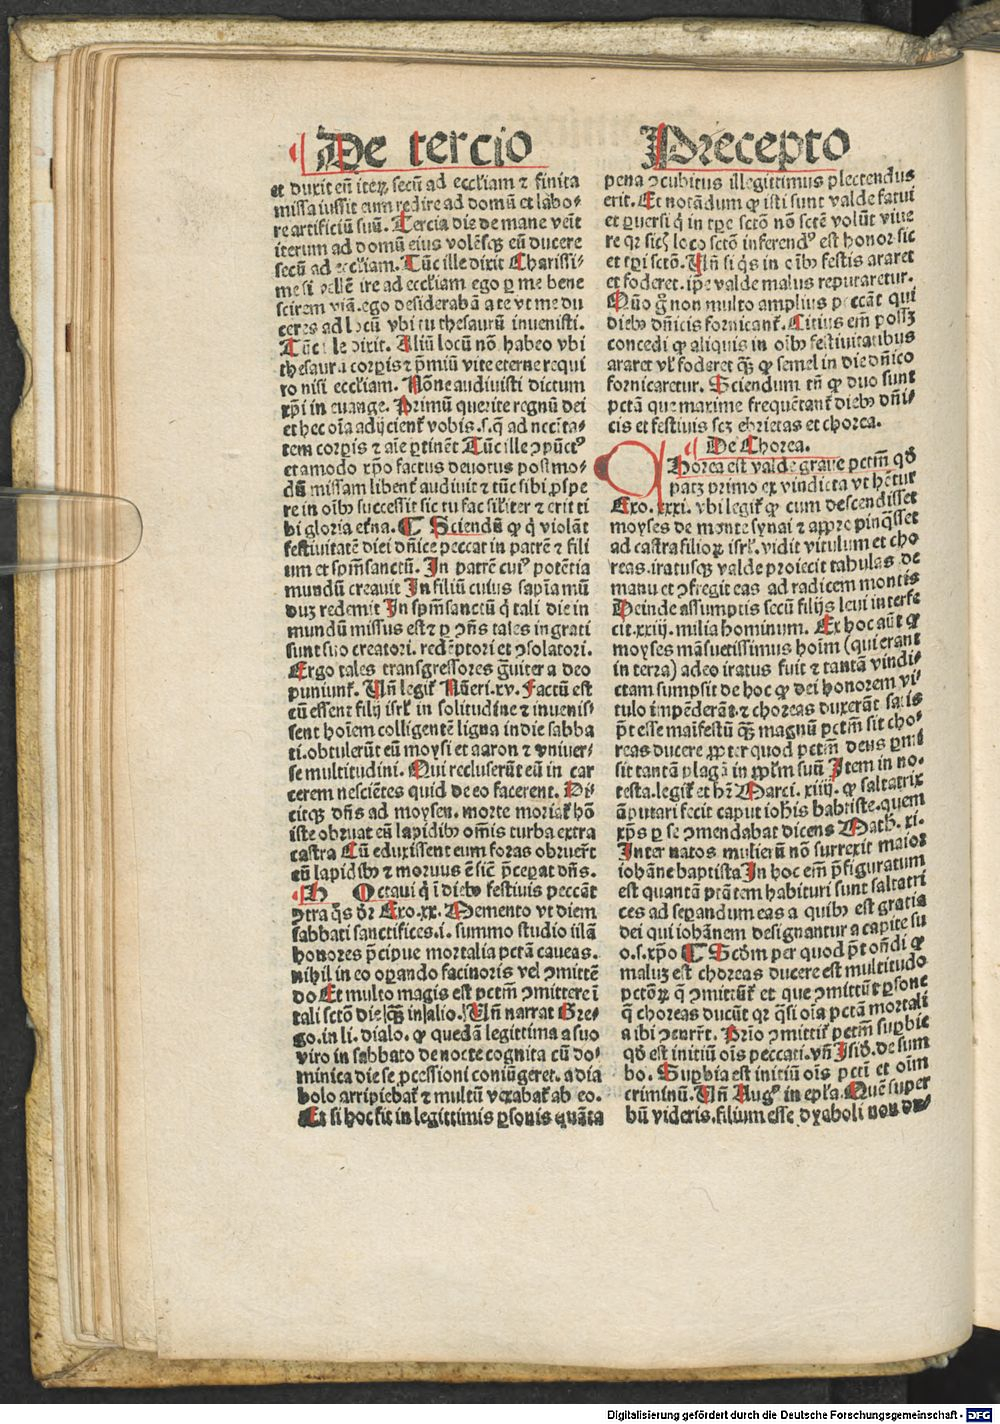 De tercio Precepto
et duxit eū iteꝝ secū ad ecc̄liam ⁊ finita
missa iussit eum redire ad domū et labo-
re artificiū suū. Tercia die de mane veīt
iterum ad domū eius volēsqꝫ eū ducere
secū ad ecc̄liam. Tūc ille dixit Charissi-
me si vellē ire ad ecc̄liam ego ꝑ me bene
scirem viā. ego desiderabā a te vt me du
ceres ad locū vbi tu thesaurū inuenisti.
Tūc ille dixit. Aliū locū nō habeo vbi
thesaurū corꝑis ⁊ p̄miū vite eterne requi
ro nisi ecc̄liam. Nōne audiuisti dictum
xp̄i in euange. Primū querite regnū dei
et hec oīa adijcient̄ vobis .s. q̄ ad nccīta-
tem corꝑis ⁊ aīe ꝑtinēt Tūc ille ↄpūctꝰ
et amodo xp̄o factus deuotus post mo-
dū missam libent̄ audiuit ⁊ tūc sibi ꝓspe
re in oībꝫ successit sic tu fac sil̄iter ⁊ erit ti
bi gloria et̄na. ¶ Sciendū ꝙ q̇ violāt
festiuitatē diei dn̄ice peccat in patrē ⁊ fili
um et sp̄m sanctū. In patrē cuiꝰ potētia
mundū creauit In filiū cuius sapīa mū
duꝫ redemit In sp̄m sanctū q̇ tali die in
mundū missus est ⁊ ꝑ ↄn̄s tales ingrati
sunt suo creatori. redēptori et ↄsolatori.
Ergo tales transgressores ḡuiter a deo
puniunt̄. Vn̄ legit̄ Nūeri .xv. Factū est
cū essent filij isrl̄ in solitudine ⁊ inuenis-
sent hoīem colligentē ligna in die sabba
ti. obtulerūt eū moysi et aaron ⁊ vniuer-
se multitudini. Qui recluserūt eū in car
cerem nesciētes quid de eo facerent. Di
citqꝫ dn̄s ad moysen. morte moriat̄ hō
iste obruat eū lapidibꝫ om̄is turba extra
castra Cū eduxissent eum foras obruer̄t
eū lapidibꝫ ⁊ mortuus ē sic̄ p̄ceꝑat dn̄s.
H Octaui q̇ ī diebꝫ festiuis peccāt
ↄtra q̄s dr̄ Exo .xx. Memento vt diem
sabbati sanctifices .i. summo studio illā
honores p̄cipue mortalia pctā caueas.
nihil in eo oꝑando facinoris vel ↄmittē
do Et multo magis est pctm̄ ↄmittere ī
tali sctō die qꝫ in alio. Vn̄ narrat Gre-
go. in li. dialo. ꝙ quedā legittima a suo
viro in sabbato de nocte cognita cū do-
minica die se ꝓcessioni coniūgeret. a dia
bolo arripiebat̄ ⁊ multū vexabat̄ ab eo.
Et si hoc fit in legittimis ꝑsonis quāta
pena ↄcubitus illegittimus plectendus
erit. Et notādum ꝙ isti sunt valde fatui
et ꝑuersi q̇ in tꝑe sctō nō sctē volūt viue
re qꝛ sic̄ loco sctō inferendꝰ est honor sic
et tꝑi sctō. Vn̄ si q̇s in oībꝫ festis araret
et foderet. ip̄e valde malus reputaretur.
Quō g̊ non multo amplius peccāt qui
diebꝫ dn̄icis fornicant̄. Citius em̄ possꝫ
concedi ꝙ aliquis in oībꝫ festiuitatibus
araret vl̄ foderet qꝫ ꝙ semel in die dn̄ico
fornicaretur. Sciendum tn̄ ꝙ duo sunt
pctā que maxime frequētant̄ diebꝫ dn̄i-
cis et festiuis scꝫ ebrietas et chorea.
De Chorea.
Horea est valde graue pctm̄ qd̄
patꝫ primo ex vindicta vt hētur
Exo. .xxi. vbi legit̄ ꝙ cum descendisset
moyses de monte synai ⁊ appropinq̄sset
ad castra filioꝝ isrl̄. vidit vitulum et cho
reas. iratusqꝫ valde proiecit tabulas de
manu et ↄfregit eas ad radicem montis
Deinde assumptis secū filijs leui interfe
cit .xxiij. milia hominum. Ex hoc aūt ꝙ
moyses māsuetissimus hoīm (qui erant
in terra) adeo iratus fuit ⁊ tantā vindi-
ctam sumpsit de hoc ꝙ dei honorem vi-
tulo impēderāt ⁊ choreas duxerāt satis
p̄t esse maīfestū qꝫ magnū pctm̄ sit cho-
reas ducere ꝓpter quod pctm̄ deus ꝑmi
sit tantā plagā in ppl̄m suū Item in no-
testa. legit̄ et hr̄ Marci .xiiij. ꝙ saltatrix
āputari fecit caput ioh̄is babtiste. quem
xp̄s ꝑ se ↄmendabat dicens Math. xi.
Inter natos mulierū nō surrexit maior
iohāne baptista In hoc em̄ p̄figuratum
est quantā ptātem habituri sunt saltatri
ces ad seꝑandum eas a quibꝫ est gratia
dei qui iohānem designantur a capite su
o .s. xp̄o ¶ Scd̄m per quod p̄t on̄di ꝙ
maluꝫ est choreas ducere est multitudo
pctōꝝ q̄ ↄmittūt̄ et que ↄmittūt ꝑsone
q̄ choreas ducūt qꝛ q̄si oīa pctā mortali
a ibi ↄcurr̄t. Prīo ↄmittit̄ pctm̄ suꝑbie
qd̄ est initiū oīs peccati. vn̄ Isid̄. de sum
bo. Suꝑbia est initiū oīs pctī et oīm
criminū. Vn̄ Augꝰ in epl̄a. Quē super
bū videris. filium esse dyaboli non du-
Digitalisierung gefördert durch die Deutsche Forschungsgemeinschaft - DFG